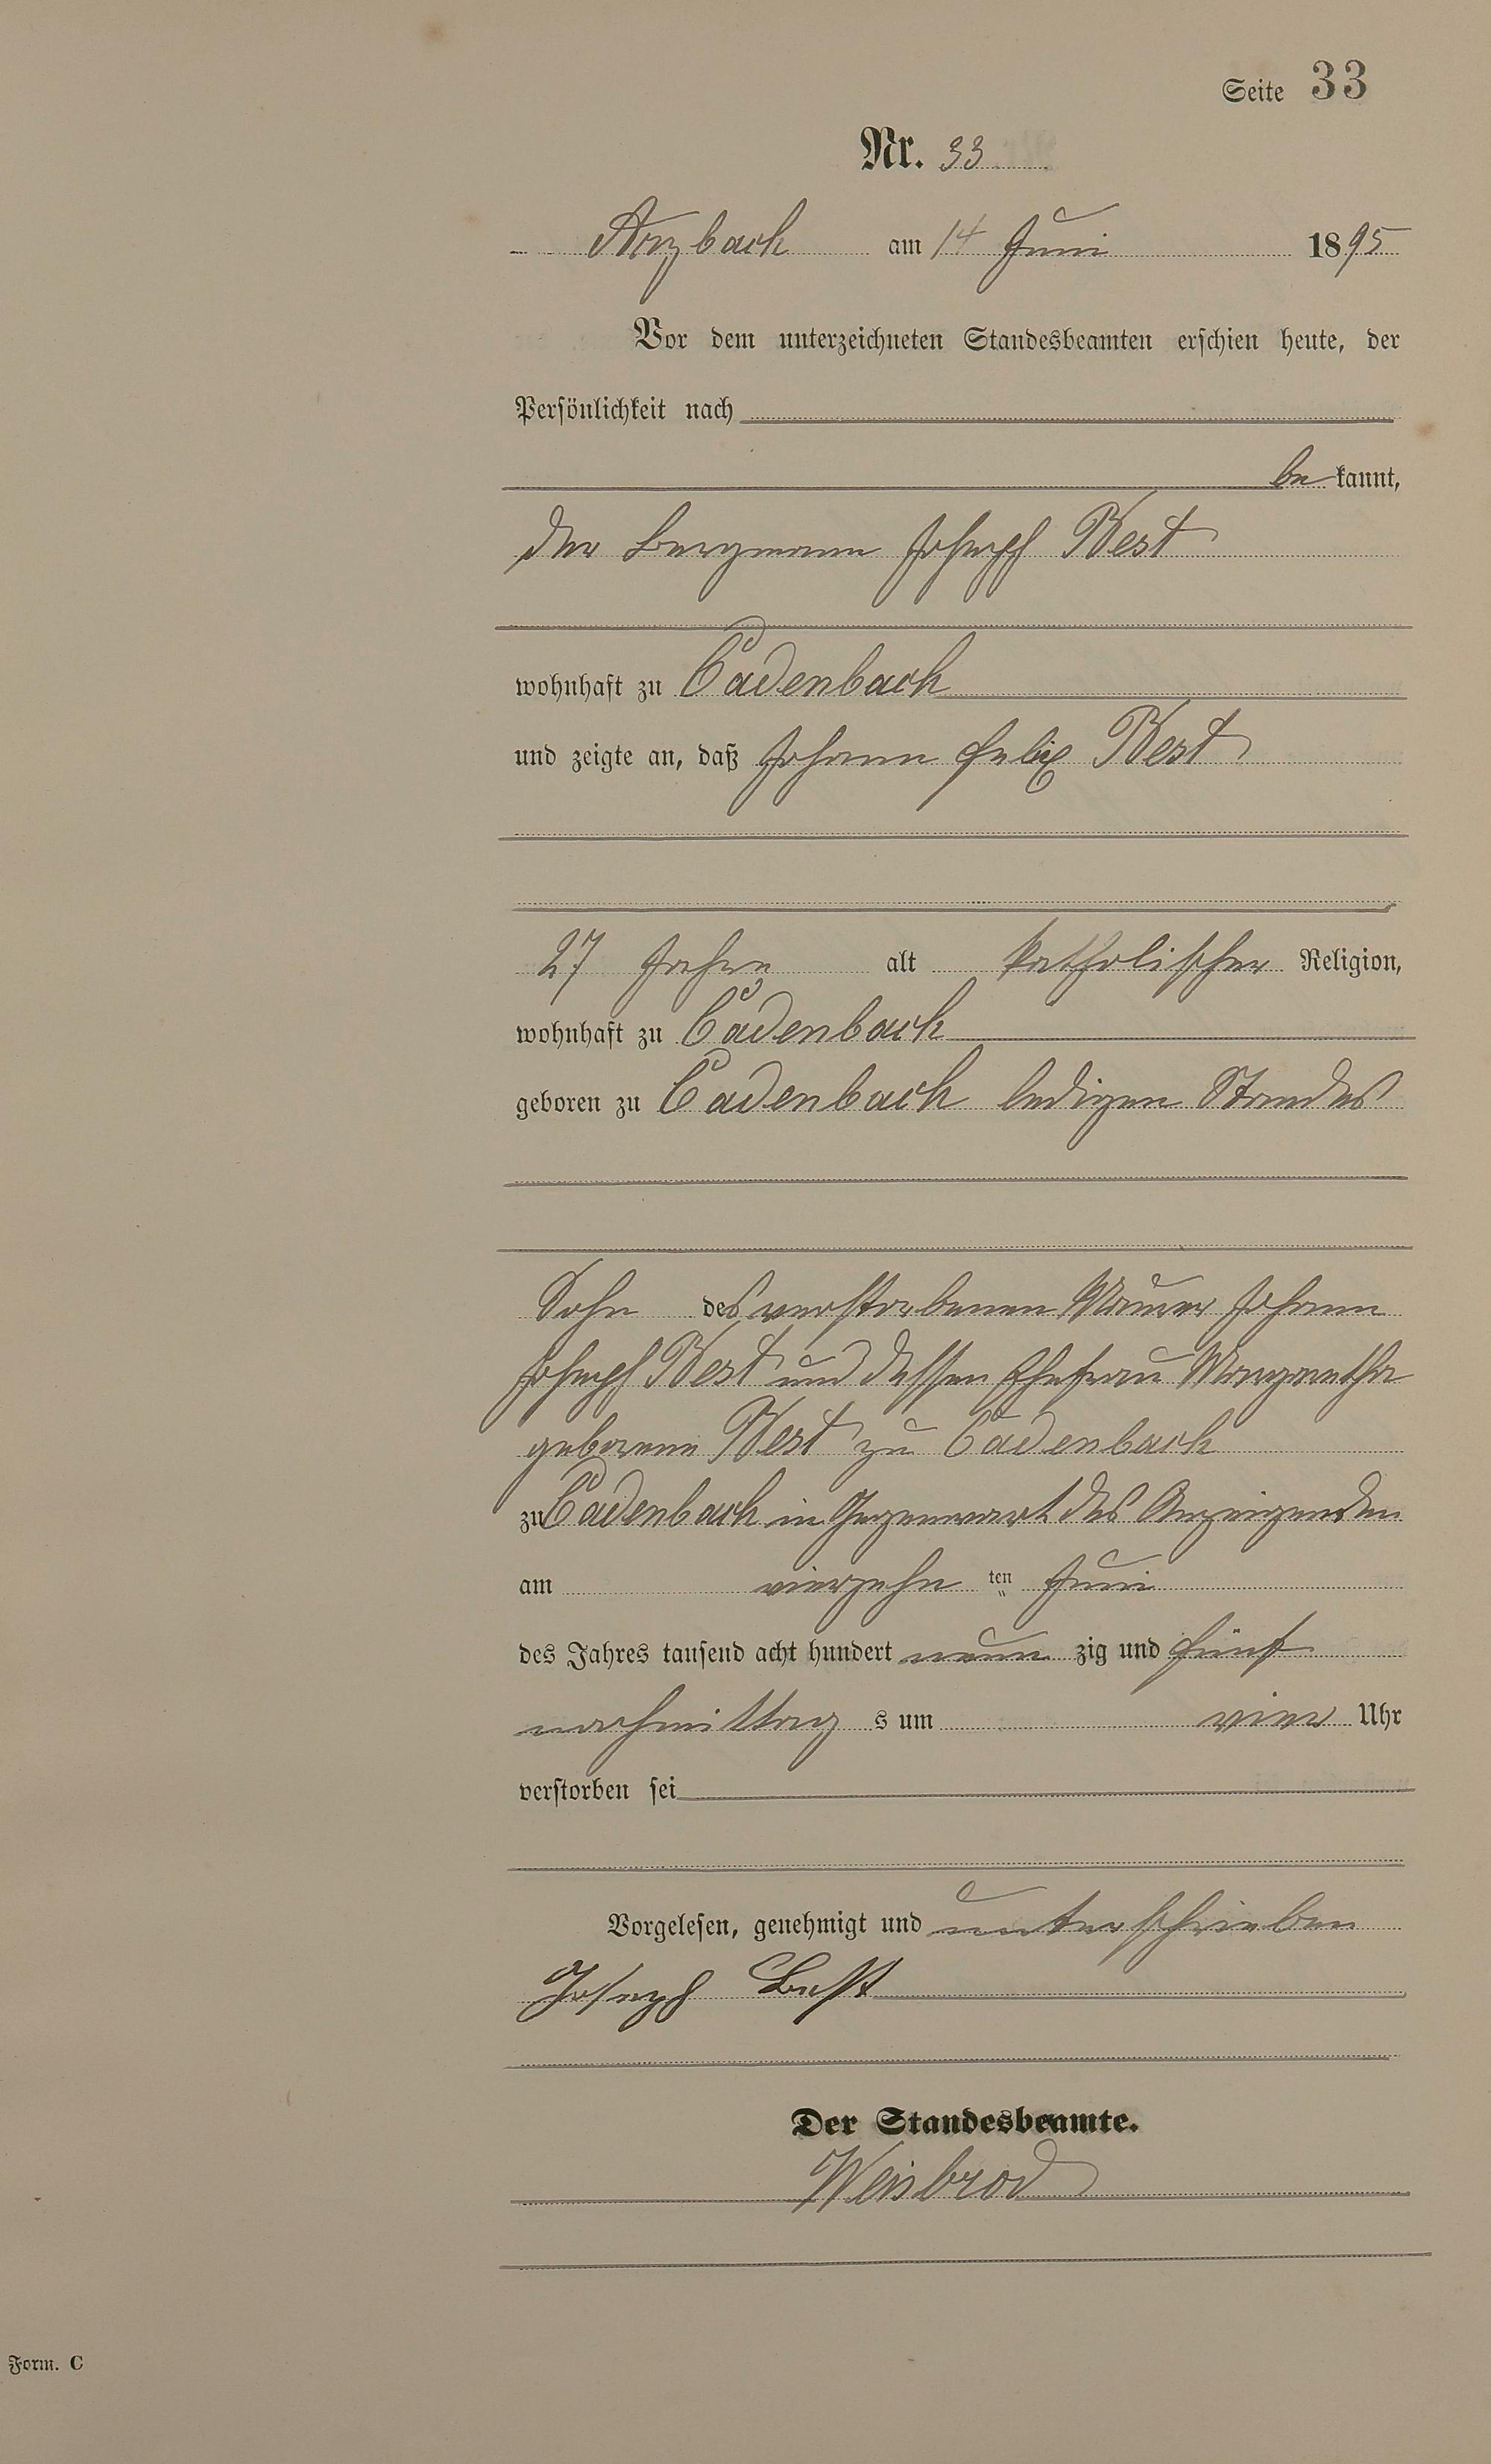 Seite 33
Nr. 33
Arzbach am 14 Juni 1895
Vor dem unterzeichneten Standesbeamten erschien heute, der
Persönlichkeit nach
be kannt,
der Bergmann Joseph Best
wohnhaft zu Cadenbach
und zeigte an, daß Johann Felix Best
27 Jahre alt katholischer Religion,
wohnhaft zu Cadenbach
geboren zu Cadenbach ledigen Standes
Sohn des verstorbenen Maurer Johann
Joseph Best und dessen Ehefrau Margaretha
geborene Best zu Cadenbach
zu Cadenbach in Gegenwart des Anzeigenden
am vierzehn ten Juni
des Jahres tausend acht hundert neun zig und fünf
nachmittag s um vier Uhr
verstorben sei
Vorgelesen, genehmigt und unterschrieben
Joseph Best
Der Standesbeamte.
Weisbrod
Form. C